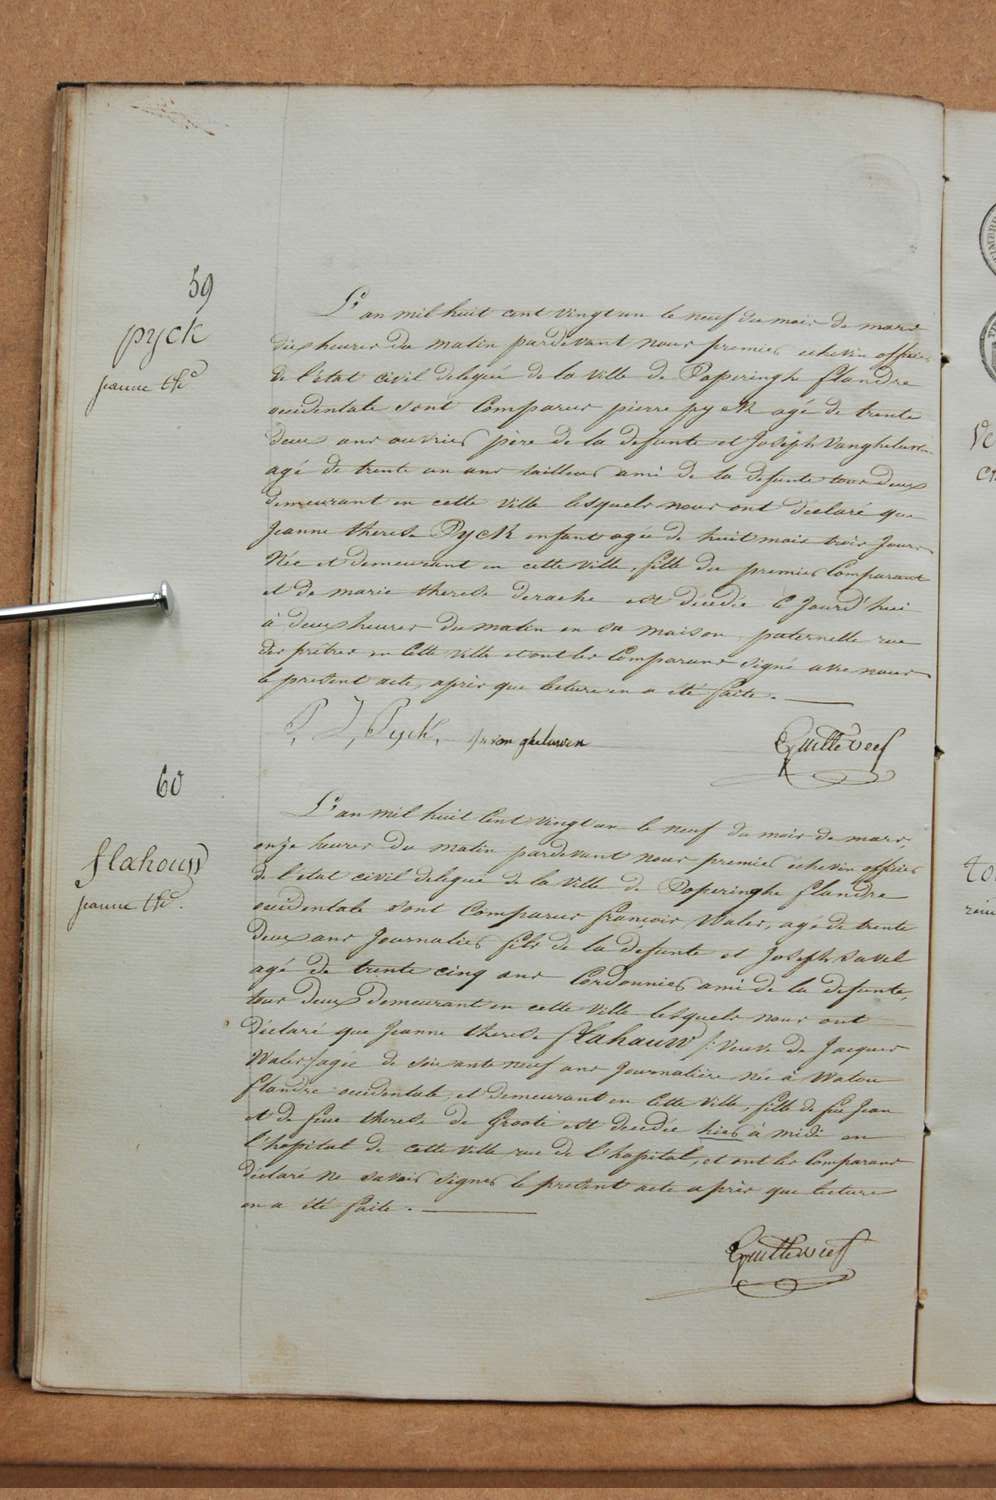 59
pyck
jeanne thse
L'an mil huit cent vingt un le neuf du mois de mars
dix heures du matin pardevant nous premier echevin officier
de l'etat civil delegué de la ville de Poperinghe flandre
occidentale sont Comparus pierre pyck agé de trente
deux ans ouvrier père de la defunte et Joseph Vangheluwen
agé de trente un ans tailleur ami de la defunte tous deux
demeurant en cette ville lesquels nous ont déclaré que
Jeanne therese Pyck enfant agée de huit mois trois jours
Née et demeurant en cette ville, fille du premier Comparant
et de marie therese derache est décédée C Jourd'hui
à deux heures du matin en sa maison paternelle rue
des prêtres en Cette ville et ont les Comparans signé avec nous
le present acte, après que lecture en a été faite.
P. J. Pyck. J. van gheluwen Quilleveef
60
flahouw
jeanne thse.
L'an mil huit Cent vingt un le neuf du mois de mars,
onze heures du matin pardevant nous premier echevin officier
de l'etat civil delegué de la ville de Poperinghe flandre
occidentale sont Comparus françois Wales, agé de trente
deux ans Journalier fils de la defunte et Joseph Savel
agé de trente cinq ans Cordonnier ami de la defunte,
tous deux demeurant en cette ville lesquels nous ont
déclaré que Jeanne therese flahauw /: veuve de Jacques
Wales/ agée de soixante neuf ans Journalière née à Watou
flandre occidentale, et demeurant en Cette ville, fille de feu Jean
et de feue therese de Groote est decedée hier à midi en
l'hopital de cette ville rue de l'hopital, et ont les Comparans
déclaré ne savoir signer le present acte après que lecture
en a été faite.
Quilleveef